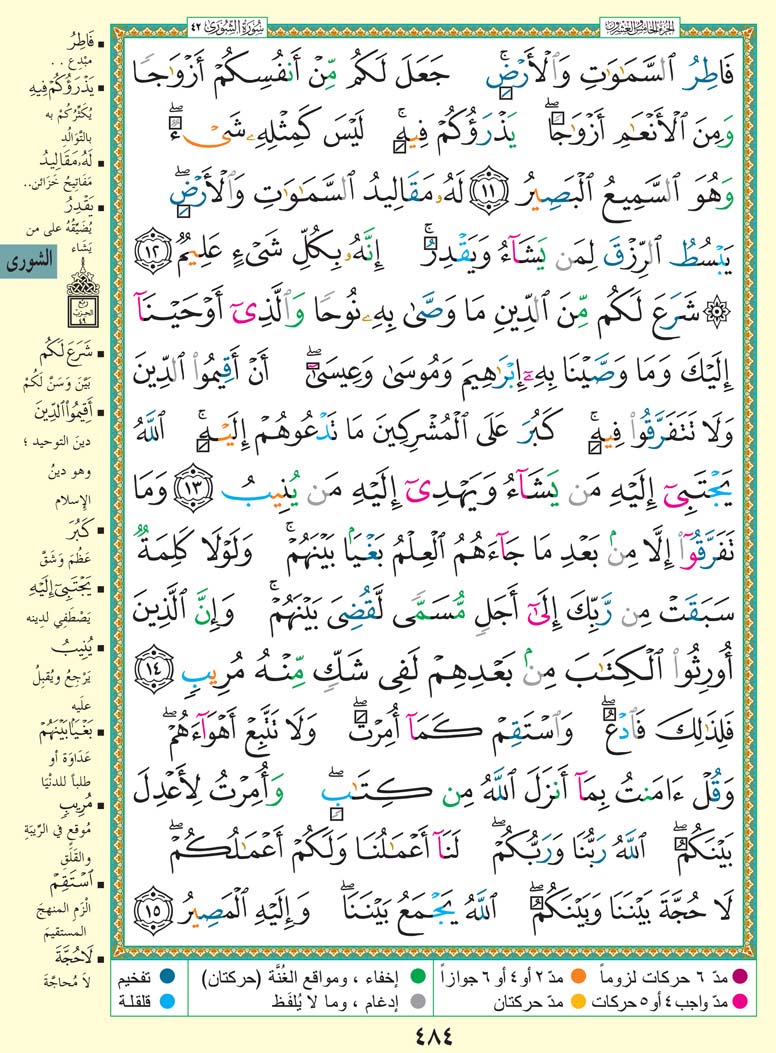 الجزء الخامس والعشرون
سورة الشورى ٤٢
فَاطِرُ السَّمَٰوَٰتِ وَالْأَرْضِۚ جَعَلَ لَكُم مِّنْ أَنفُسِكُمْ أَزْوَٰجًا
وَمِنَ الْأَنْعَٰمِ أَزْوَٰجًاۖ يَذْرَؤُكُمْ فِيهِۚ لَيْسَ كَمِثْلِهِۦ شَىْءٌۖ
وَهُوَ السَّمِيعُ الْبَصِيرُ ١١ لَهُۥ مَقَالِيدُ السَّمَٰوَٰتِ وَالْأَرْضِۖ
يَبْسُطُ الرِّزْقَ لِمَن يَشَآءُ وَيَقْدِرُۚ إِنَّهُۥ بِكُلِّ شَىْءٍ عَلِيمٌ ١٢
۞ شَرَعَ لَكُم مِّنَ الدِّينِ مَا وَصَّىٰ بِهِۦ نُوحًا وَالَّذِىٓ أَوْحَيْنَآ
إِلَيْكَ وَمَا وَصَّيْنَا بِهِۦٓ إِبْرَٰهِيمَ وَمُوسَىٰ وَعِيسَىٰٓۖ أَنْ أَقِيمُوا۟ الدِّينَ
وَلَا تَتَفَرَّقُوا۟ فِيهِۚ كَبُرَ عَلَى الْمُشْرِكِينَ مَا تَدْعُوهُمْ إِلَيْهِۚ اللَّهُ
يَجْتَبِىٓ إِلَيْهِ مَن يَشَآءُ وَيَهْدِىٓ إِلَيْهِ مَن يُنِيبُ ١٣ وَمَا
تَفَرَّقُوٓا۟ إِلَّا مِنۢ بَعْدِ مَا جَآءَهُمُ الْعِلْمُ بَغْيًۢا بَيْنَهُمْۚ وَلَوْلَا كَلِمَةٌ
سَبَقَتْ مِن رَّبِّكَ إِلَىٰٓ أَجَلٍ مُّسَمًّى لَّقُضِىَ بَيْنَهُمْۚ وَإِنَّ الَّذِينَ
أُورِثُوا۟ الْكِتَٰبَ مِنۢ بَعْدِهِمْ لَفِى شَكٍّ مِّنْهُ مُرِيبٍ ١٤
فَلِذَٰلِكَ فَادْعُۖ وَاسْتَقِمْ كَمَآ أُمِرْتَۖ وَلَا تَتَّبِعْ أَهْوَآءَهُمْۖ
وَقُلْ ءَامَنتُ بِمَآ أَنزَلَ اللَّهُ مِن كِتَٰبٍۖ وَأُمِرْتُ لِأَعْدِلَ
بَيْنَكُمُۖ اللَّهُ رَبُّنَا وَرَبُّكُمْۖ لَنَآ أَعْمَٰلُنَا وَلَكُمْ أَعْمَٰلُكُمْۖ
لَا حُجَّةَ بَيْنَنَا وَبَيْنَكُمُۖ اللَّهُ يَجْمَعُ بَيْنَنَاۖ وَإِلَيْهِ الْمَصِيرُ ١٥
فَاطِرُ
مُبْدِع . .
يَذْرَؤُكُمْ فِيهِ
يُكَثِّرُكُمْ به
بالتَّوَالُدِ
لَهُۥ مَقَالِيدُ
مَفَاتِيحُ خَزَائن..
يَقْدِرُ
يُضَيِّقُهُ على من
يَشَاء
الشورى
ربع
الحزب
٤٩
شَرَعَ لَكُم
بَيَّنَ وَسَنَّ لَكُمْ
أَقِيمُوا۟ الدِّينَ
دينَ التوحيد ؛
وهو دينُ
الإسلام
كَبُرَ
عَظُمَ وَشَقَّ
يَجْتَبِىٓ إِلَيْهِ
يَصْطَفِي لدِينه
يُنِيبُ
يَرْجِعُ ويُقبِلُ
علَيه
بَغْيًۢا بَيْنَهُمْ
عَدَاوَة أو
طلباً للدنْيَا
مُرِيبٍ
مُوقِعٍ في الرِّيبَةِ
والقَلَقِ
اسْتَقِمْ
الْزَمِ المنهجَ
المستقيمَ
لَا حُجَّةَ
لاَ مُحاجَّةَ
مدّ ٦ حركات لزوماً
مدّ ٢ أو ٤ أو ٦ جوازاً
إخفاء ، ومواقع الغُنَّة (حركتان)
تفخيم
مدّ واجب ٤ أو ٥ حركات
مدّ حركتان
إدغام ، وما لا يُلفَظ
قلقلة
٤٨٤